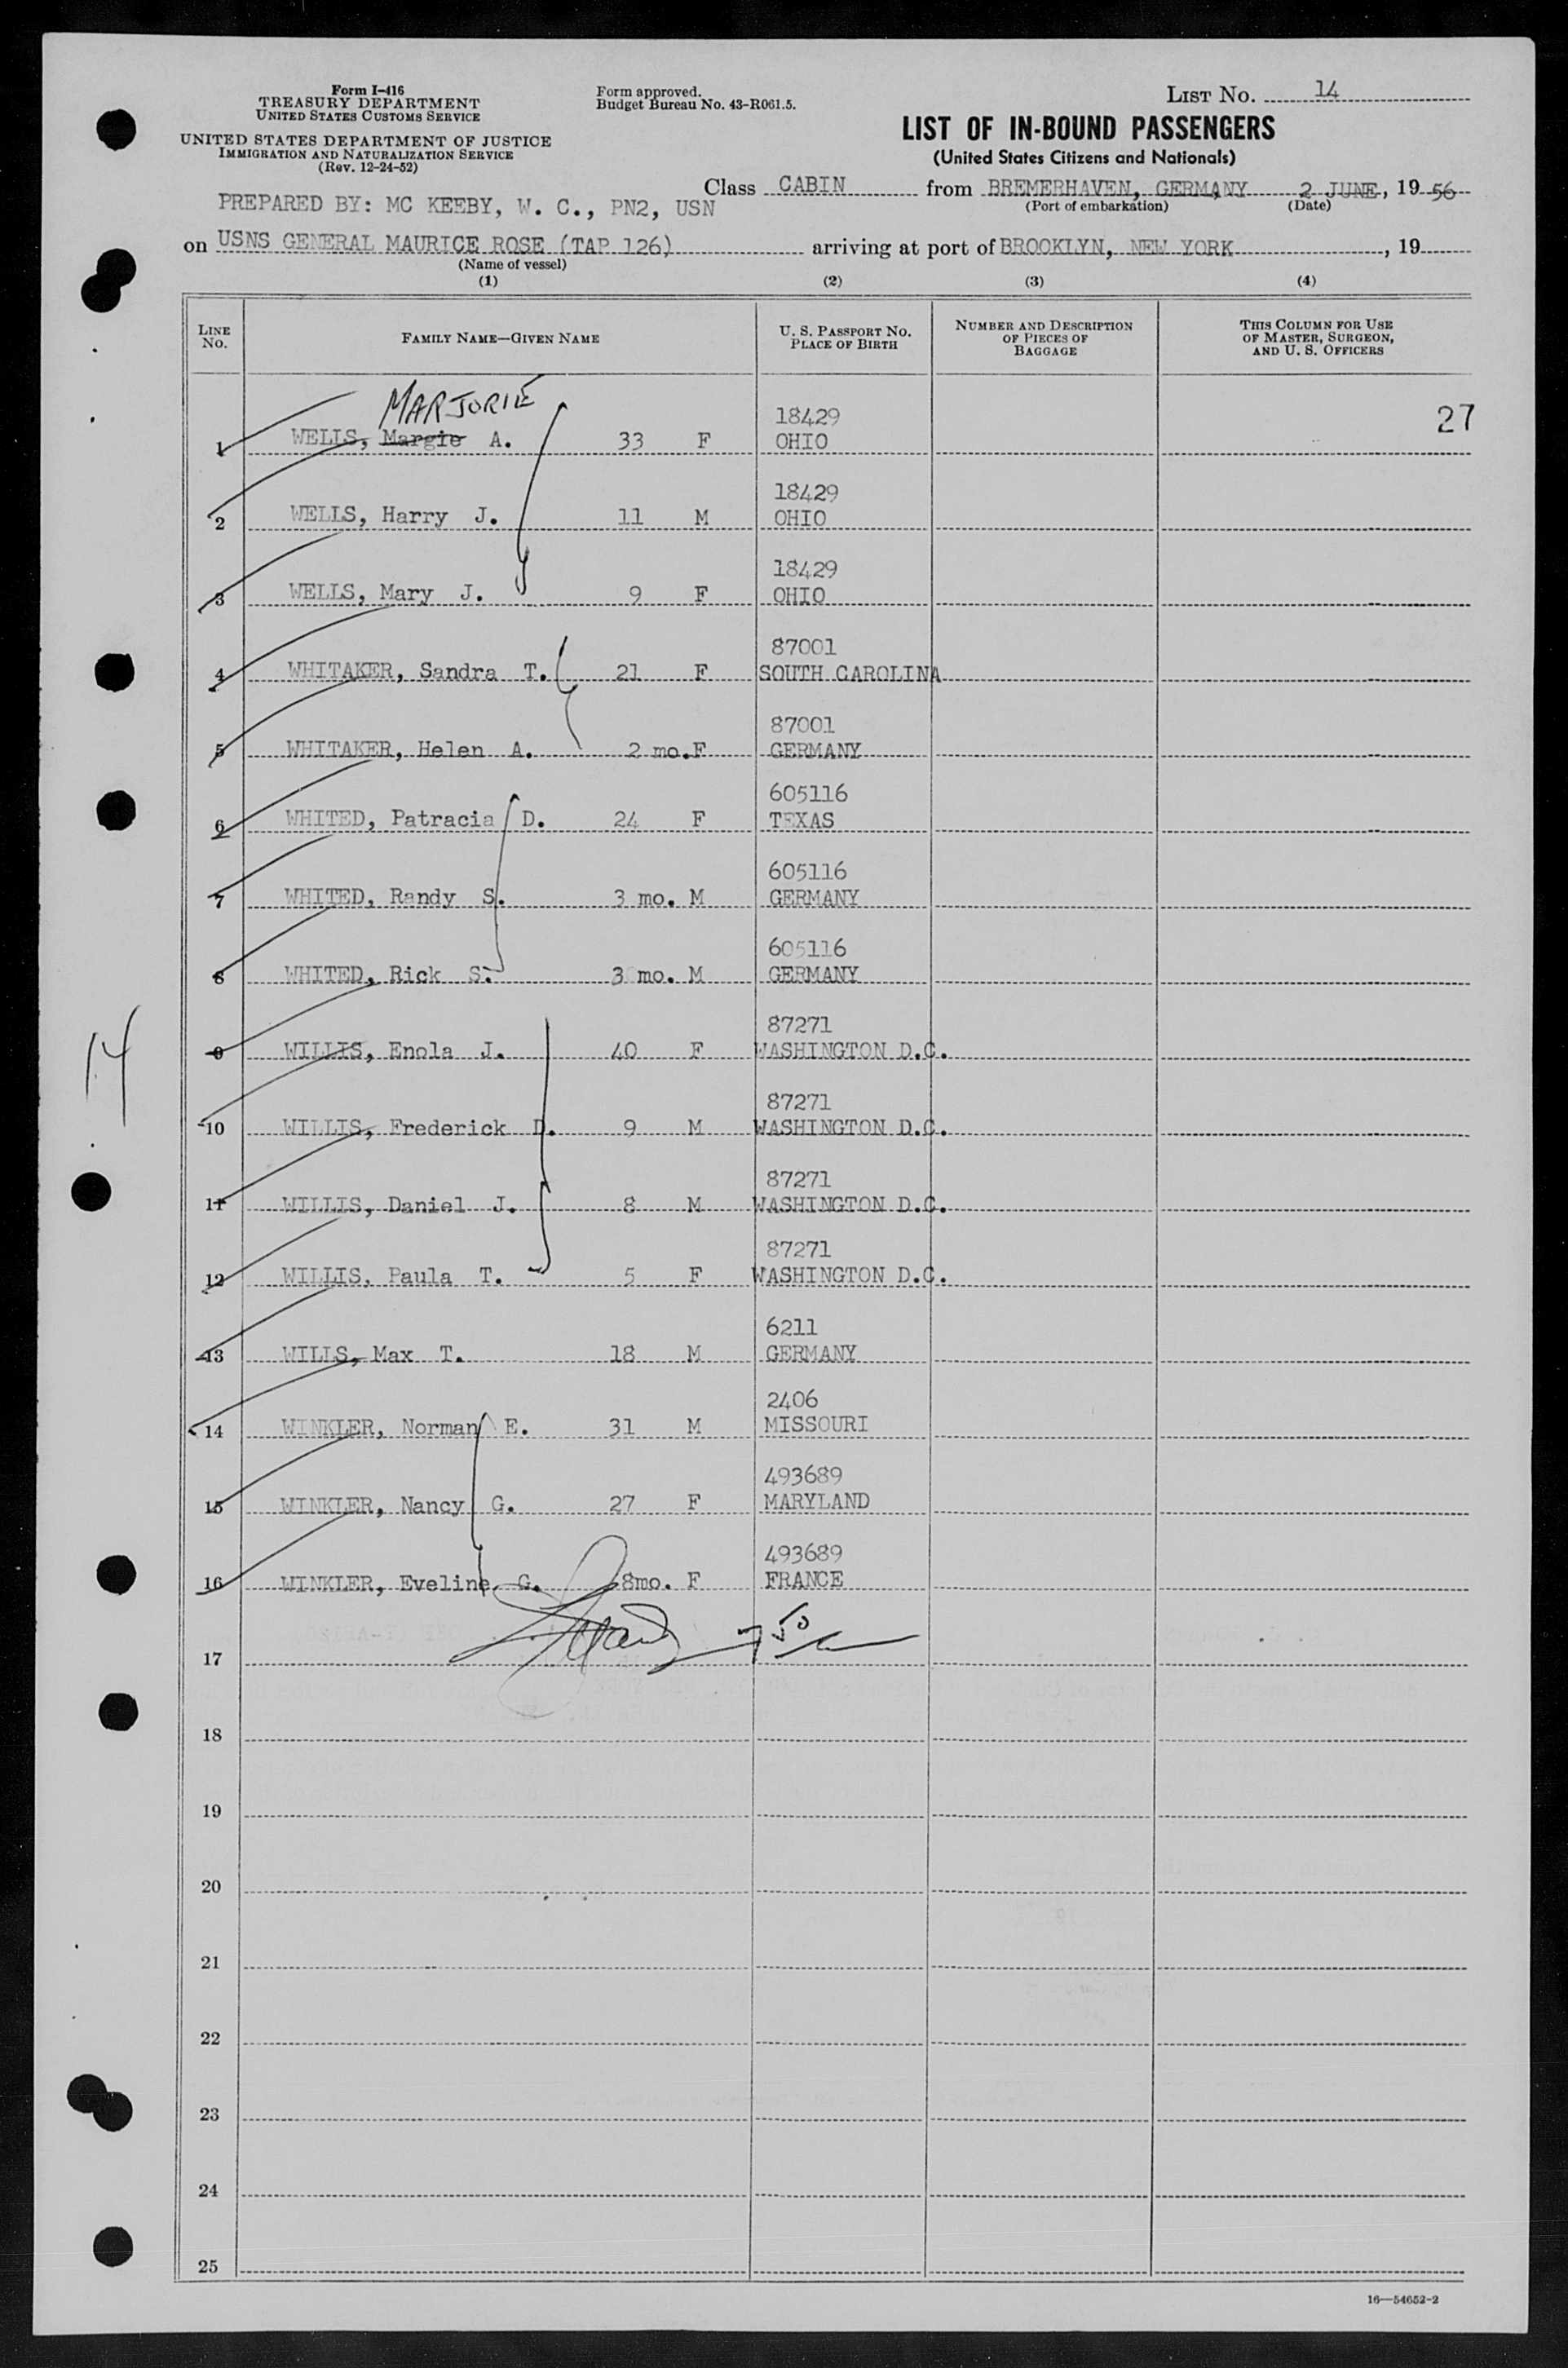 Form I-416
TREASURY DEPARTMENT
UNITED STATES CUSTOMS SERVICE
UNITED STATES DEPARTMENT OF JUSTICE
IMMIGRATION AND NATURALIZATION SERVICE
(Rev. 12-24-52)
Form approved.
Budget Bureau No. 43-R061.5.
LIST No. 14
LIST OF IN-BOUND PASSENGERS
(United States Citizens and Nationals)
Class CABIN from BREMERHAVEN, GERMANY 2 JUNE, 19 56
(Port of embarkation) (Date)
PREPARED BY: MC KEEBY, W. C., PN2, USN
on USNS GENERAL MAURICE ROSE (TAP 126) arriving at port of BROOKLYN, NEW YORK, 19
(Name of vessel)
(1) (2) (3) (4)
LINE No. FAMILY NAME—GIVEN NAME U. S. PASSPORT NO. PLACE OF BIRTH NUMBER AND DESCRIPTION OF PIECES OF BAGGAGE THIS COLUMN FOR USE OF MASTER, SURGEON, AND U. S. OFFICERS
MARJORIE
18429 27
1 WELLS, Margie A. 33 F OHIO
18429
2 WELLS, Harry J. 11 M OHIO
18429
3 WELLS, Mary J. 9 F OHIO
87001
4 WHITAKER, Sandra T. 21 F SOUTH CAROLINA
87001
5 WHITAKER, Helen A. 2 mo. F GERMANY
605116
6 WHITED, Patracia D. 24 F TEXAS
605116
7 WHITED, Randy S. 3 mo. M GERMANY
605116
8 WHITED, Rick S. 3 mo. M GERMANY
87271
9 WILLIS, Enola J. 40 F WASHINGTON D.C.
14
87271
10 WILLIS, Frederick D. 9 M WASHINGTON D.C.
87271
11 WILLIS, Daniel J. 8 M WASHINGTON D.C.
87271
12 WILLIS, Paula T. 5 F WASHINGTON D.C.
6211
13 WILLS, Max T. 18 M GERMANY
2406
14 WINKLER, Norman E. 31 M MISSOURI
493689
15 WINKLER, Nancy G. 27 F MARYLAND
493689
16 WINKLER, Eveline G. 8mo. F FRANCE
17
18
19
20
21
22
23
24
25
16—54652-2